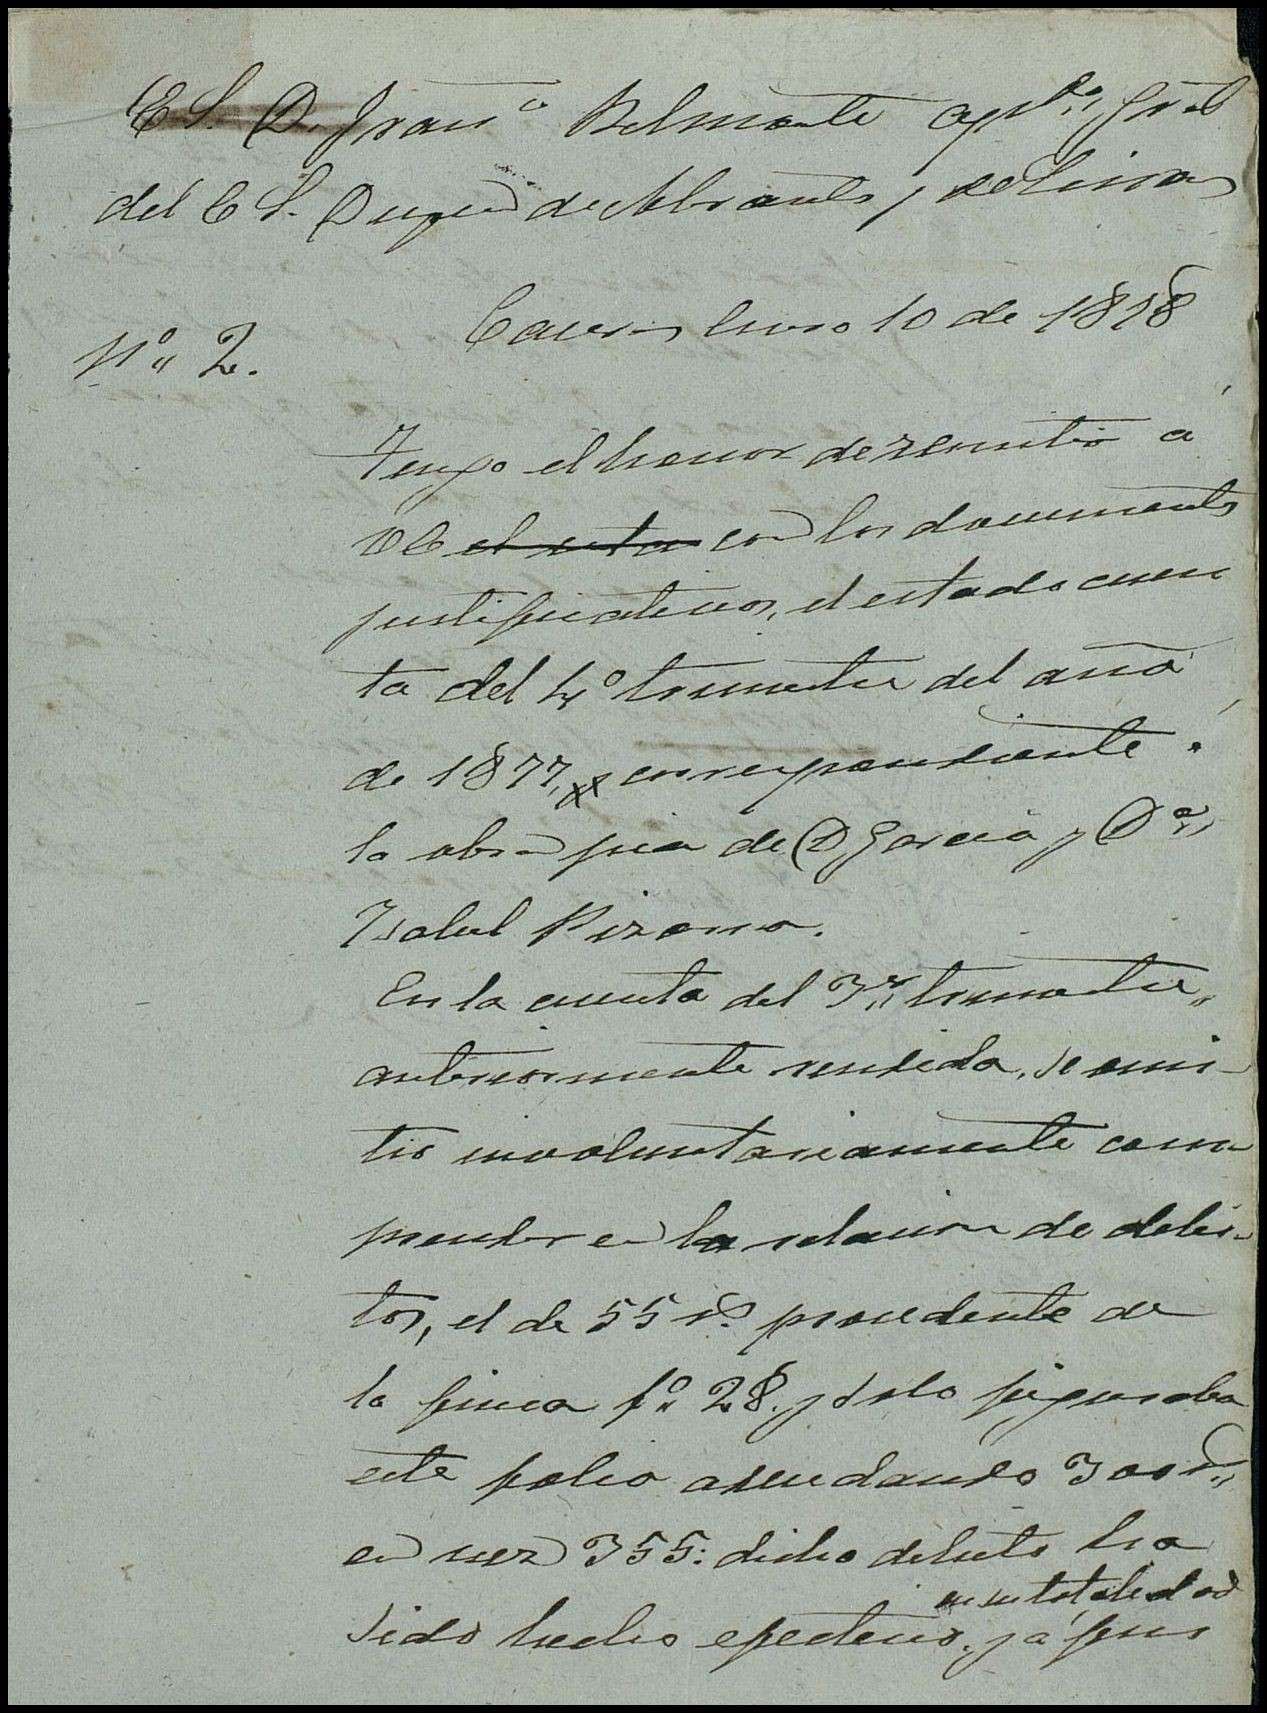 E S. D. Franco Belmonte apdo gral
del E S. Duque de Abrantes y de Linares
Caceres Enero 10 de 1878
No 2.
Tengo el honor de remitir a
VE con los documentos
justificativos, el estado cuen
ta del 4o trimestre del año
de 1877, correspondiente a
la obra pia de D Garcia y Da
Isabel Pizarro.
En la cuenta del 3er trimestre
anteriormente rendida, se omi-
tio involuntariamente com
prender en la relacion de debi-
tos, el de 55 rs procedente de
la finca fo 28. y solo figuraba
este folio adeudando 300 rs
en vez 355: dicho debito ha
en su totalidad
sido hecho efectivo, y a fin